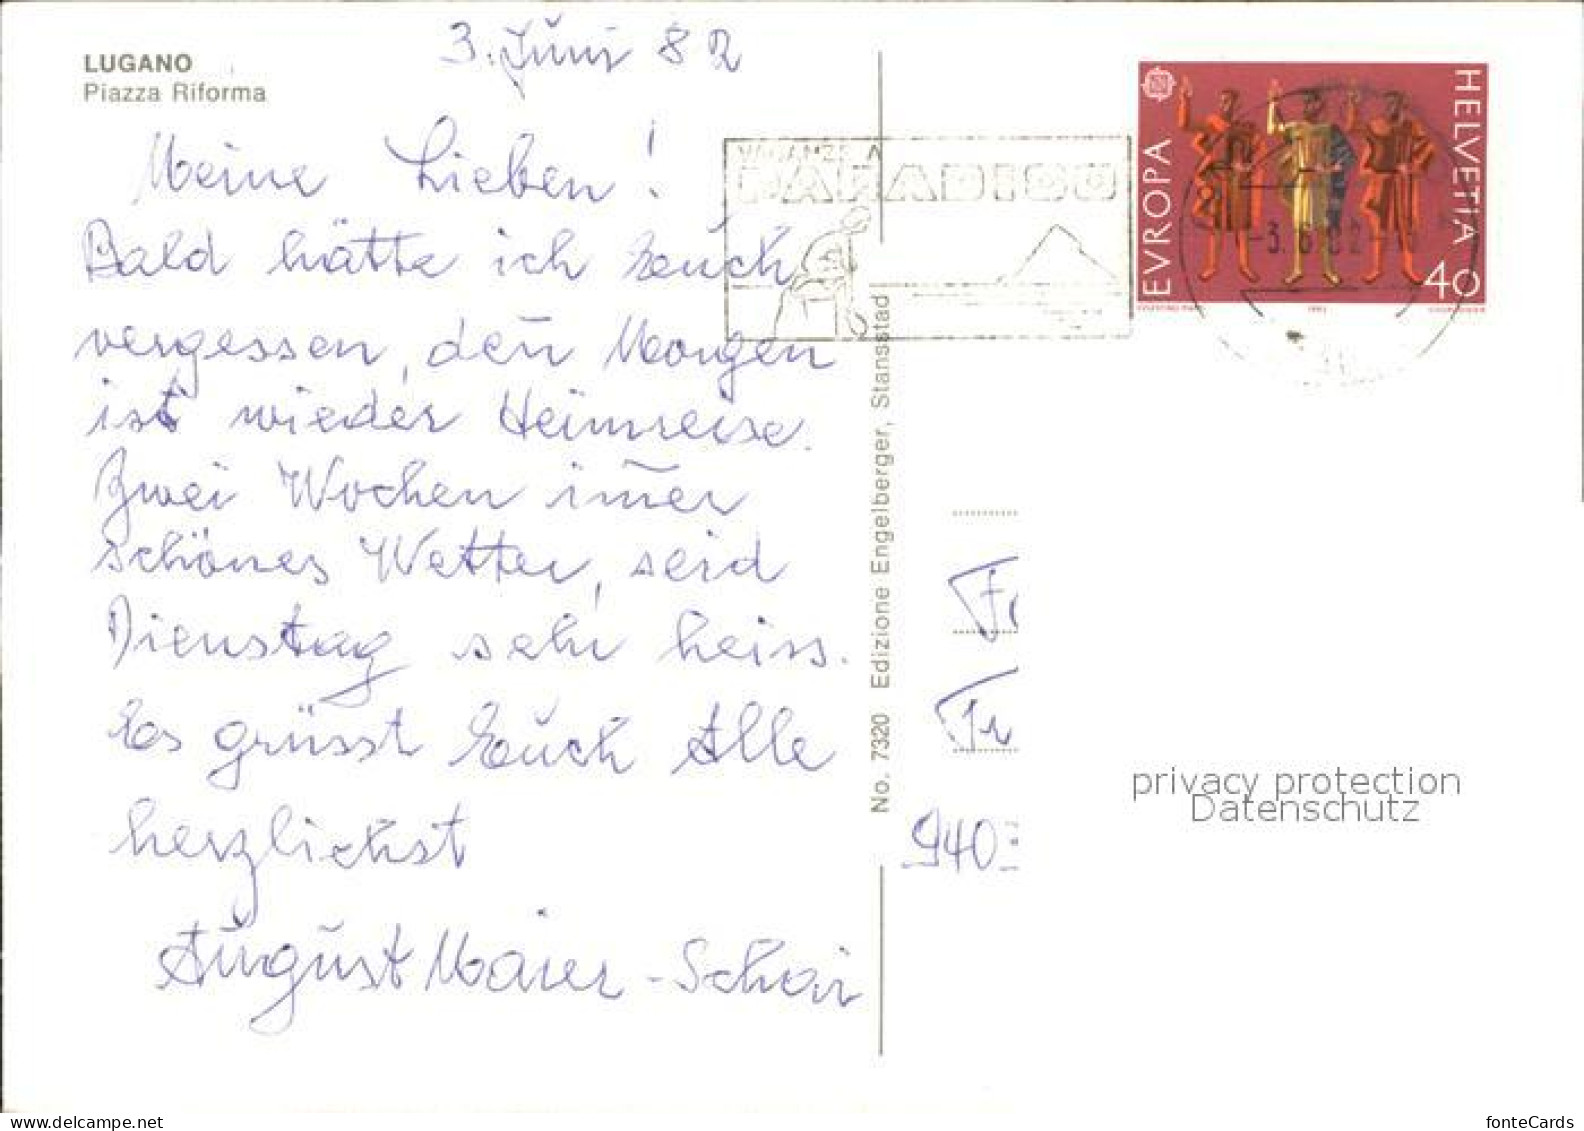 LUGANO
Piazza Riforma
3. Juni 82
Meine Lieben!
Bald hätte ich Euch
vergessen, den̄ Morgen
ist wieder Heimreise.
Zwei Wochen im̄er
schönes Wetter, seid
Dienstag sehr heiss.
Es grüsst Euch Alle
herzlichst
August Maier-Schär
No. 7320 Edizione Engelberger, Stansstad
VACANZE A
PARADISO
EVROPA
HELVETIA
40
-3.6.82
Fa
940
privacy protection
Datenschutz
fonteCards